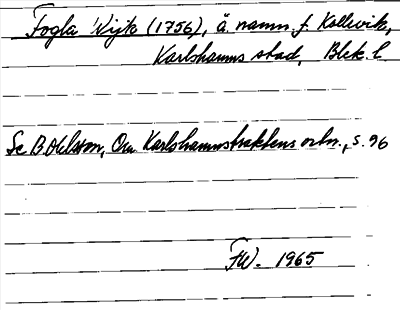 Fogla Wijk (1756), ä. namn f. Kollevik,
Karlshamns stad, Blek. l
Se B Ohlsson, Om Karlshamnstraktens ortn., s. 96
FW. 1965